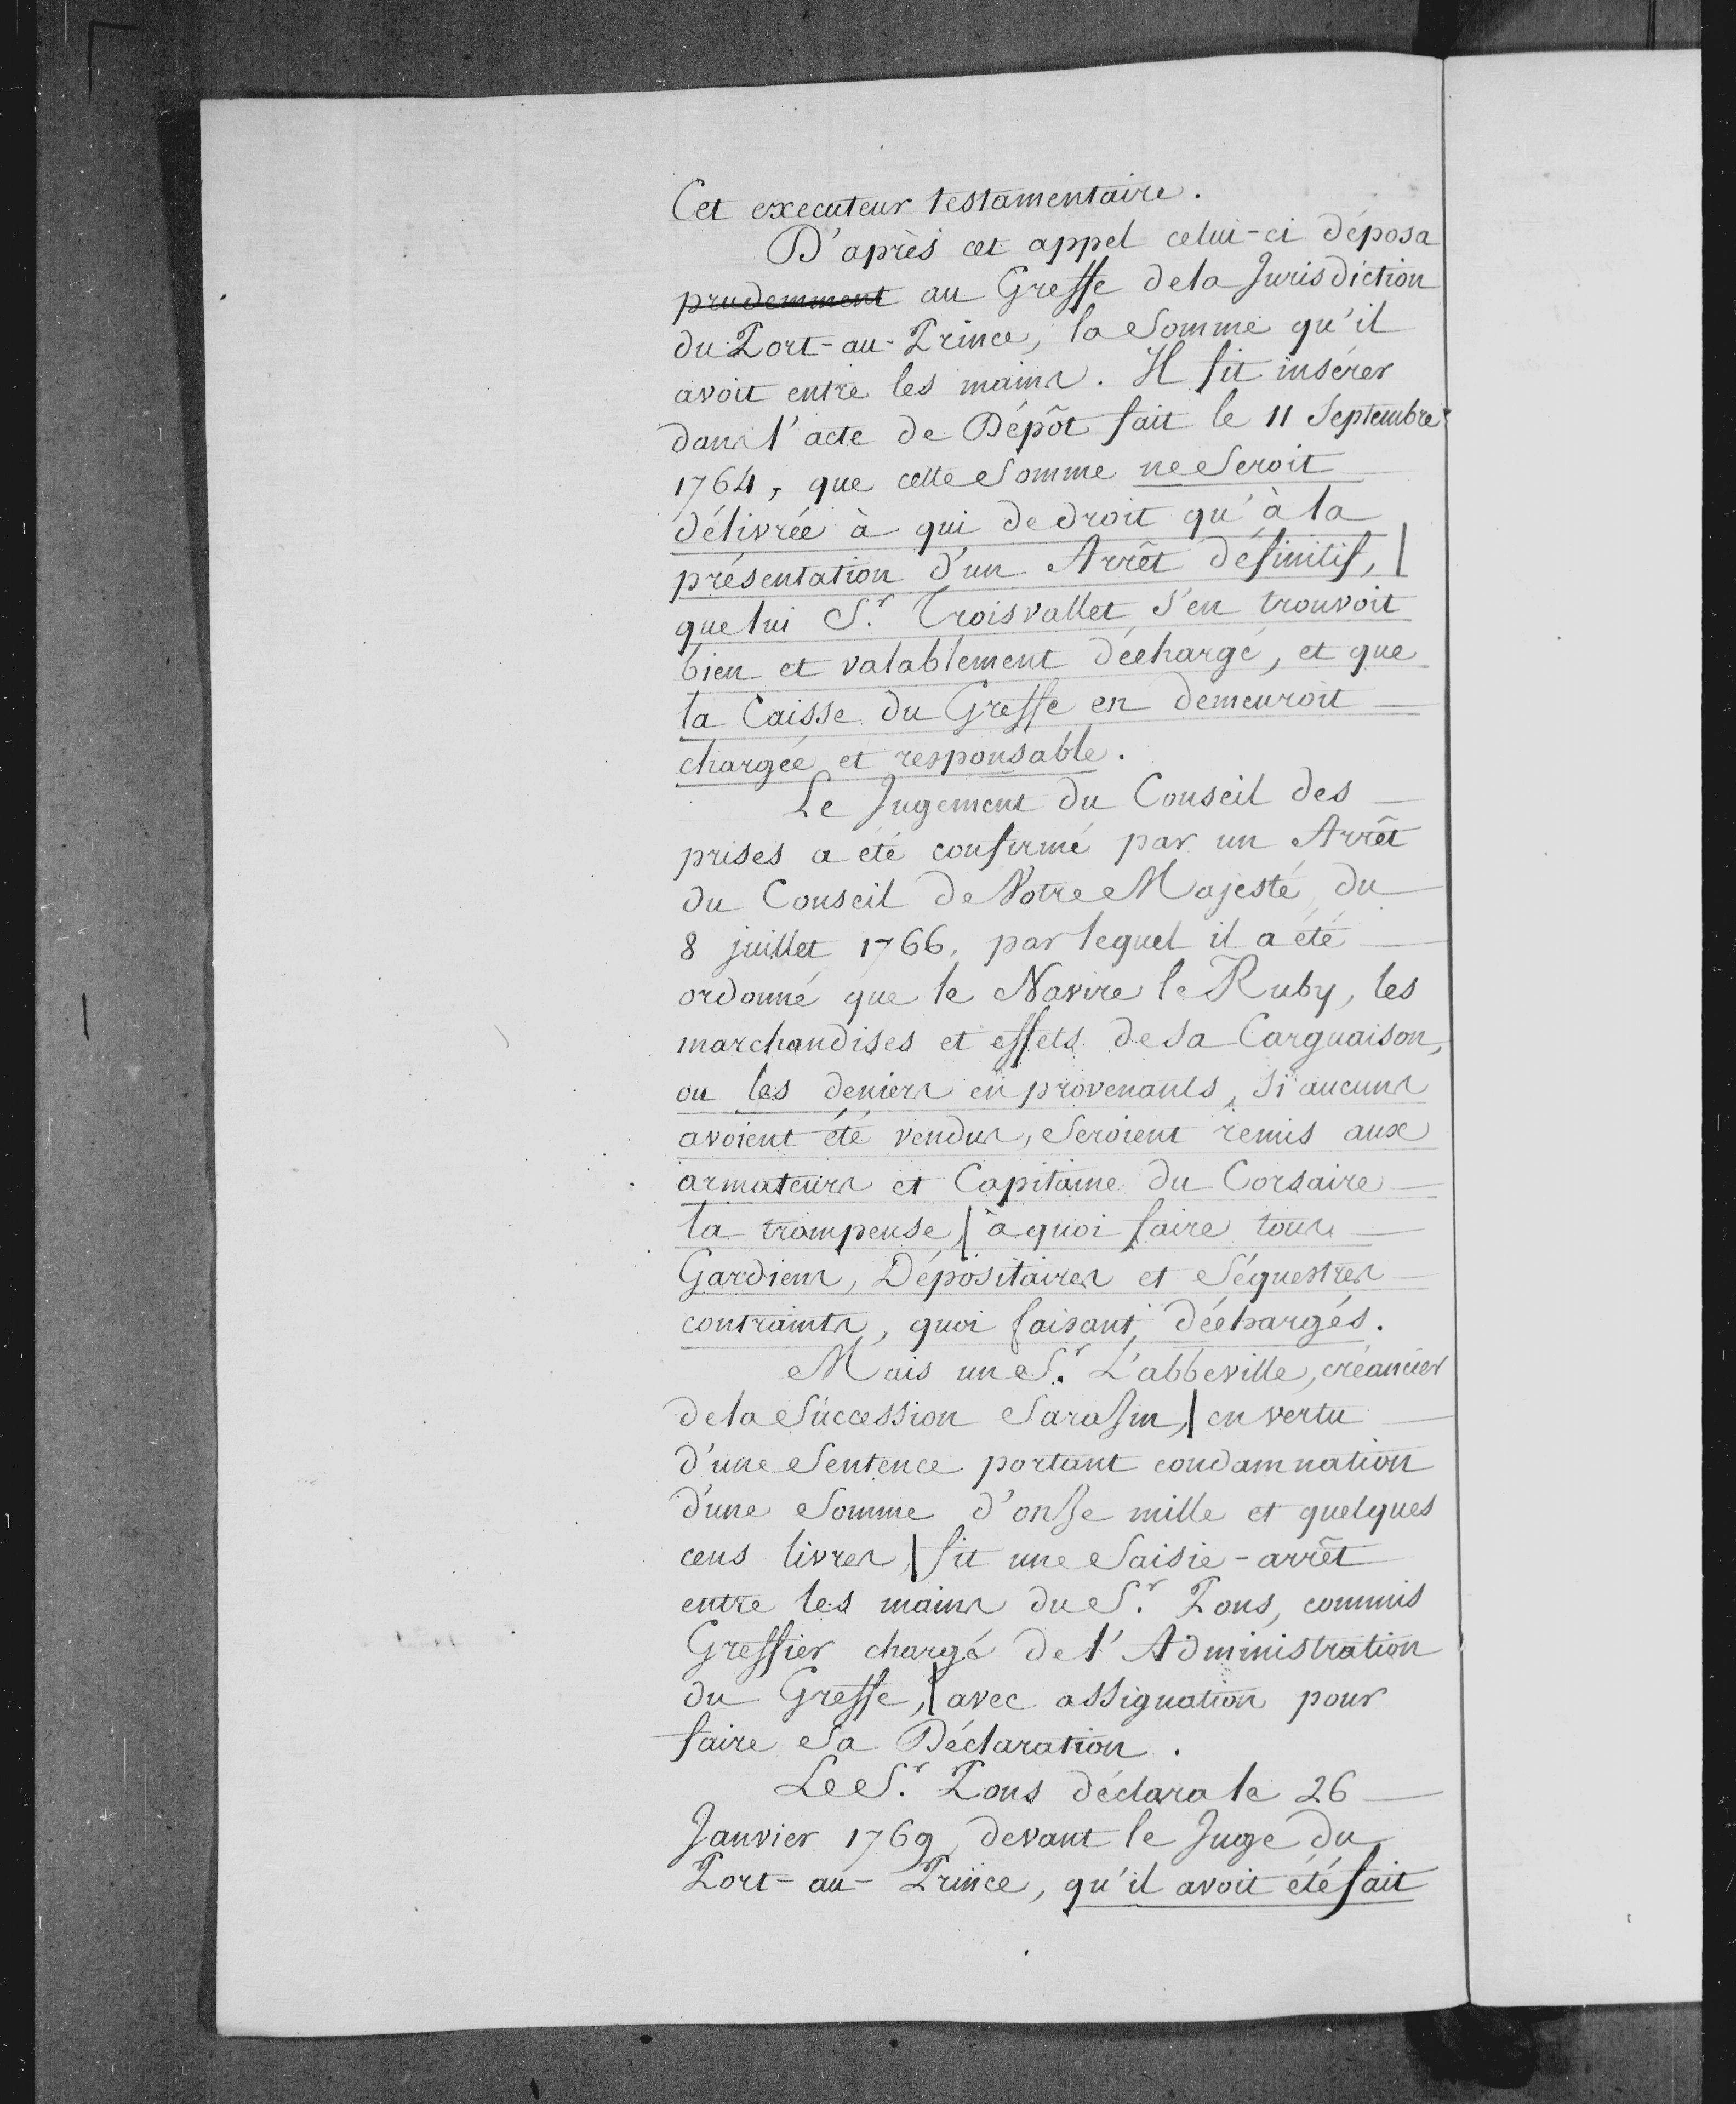 Cet executeur testamentaire.
D'après cet appel celui-ci déposa
prudemment au Greffe dela Jurisdiction
du Port-au-Prince, la Somme qu'il
avoit entre les mains. Il fit insérer
dans l'acte de Dépôt fait le 11 Septembre
1764, que cette Somme ne Seroit
délivrée à qui de droit qu'à la
présentation d'un Arrêt définitif, |
que lui Sr. Troisvallet s'en trouvoit
bien et valablement déchargé, et que
la Caisse du Greffe en demeuroit
chargée et responsable.
Le Jugement du Conseil des
prises a été confirmé par un Arrêt
du Conseil de Votre Majesté du
8 juillet 1766, par lequel il a été
ordonné que le Navire le Ruby, les
marchandises et effets de sa Carguaison,
ou les deniers en provenants, si aucuns
avoient été vendus, Seroient remis aux
armateurs et Capitaine du Corsaire
la trompeuse, | à quoi faire tous
Gardiens, Dépositaires et Séquestres
contraints, quoi faisant déchargés.
Mais un Sr. L'abbeville, créancier
dela Succession Sarasin, | en vertu
d'une Sentence portant condamnation
d'une Somme d'onse mille et quelques
cens livres, | fit une Saisie-arrêt
entre les mains du Sr. Pons, commis
Greffier chargé de l'Administration
du Greffe, | avec assignation pour
faire Sa Déclaration.
Le Sr. Pons déclara le 26
Janvier 1769, devant le Juge du
Port-au-Prince, qu'il avoit été fait